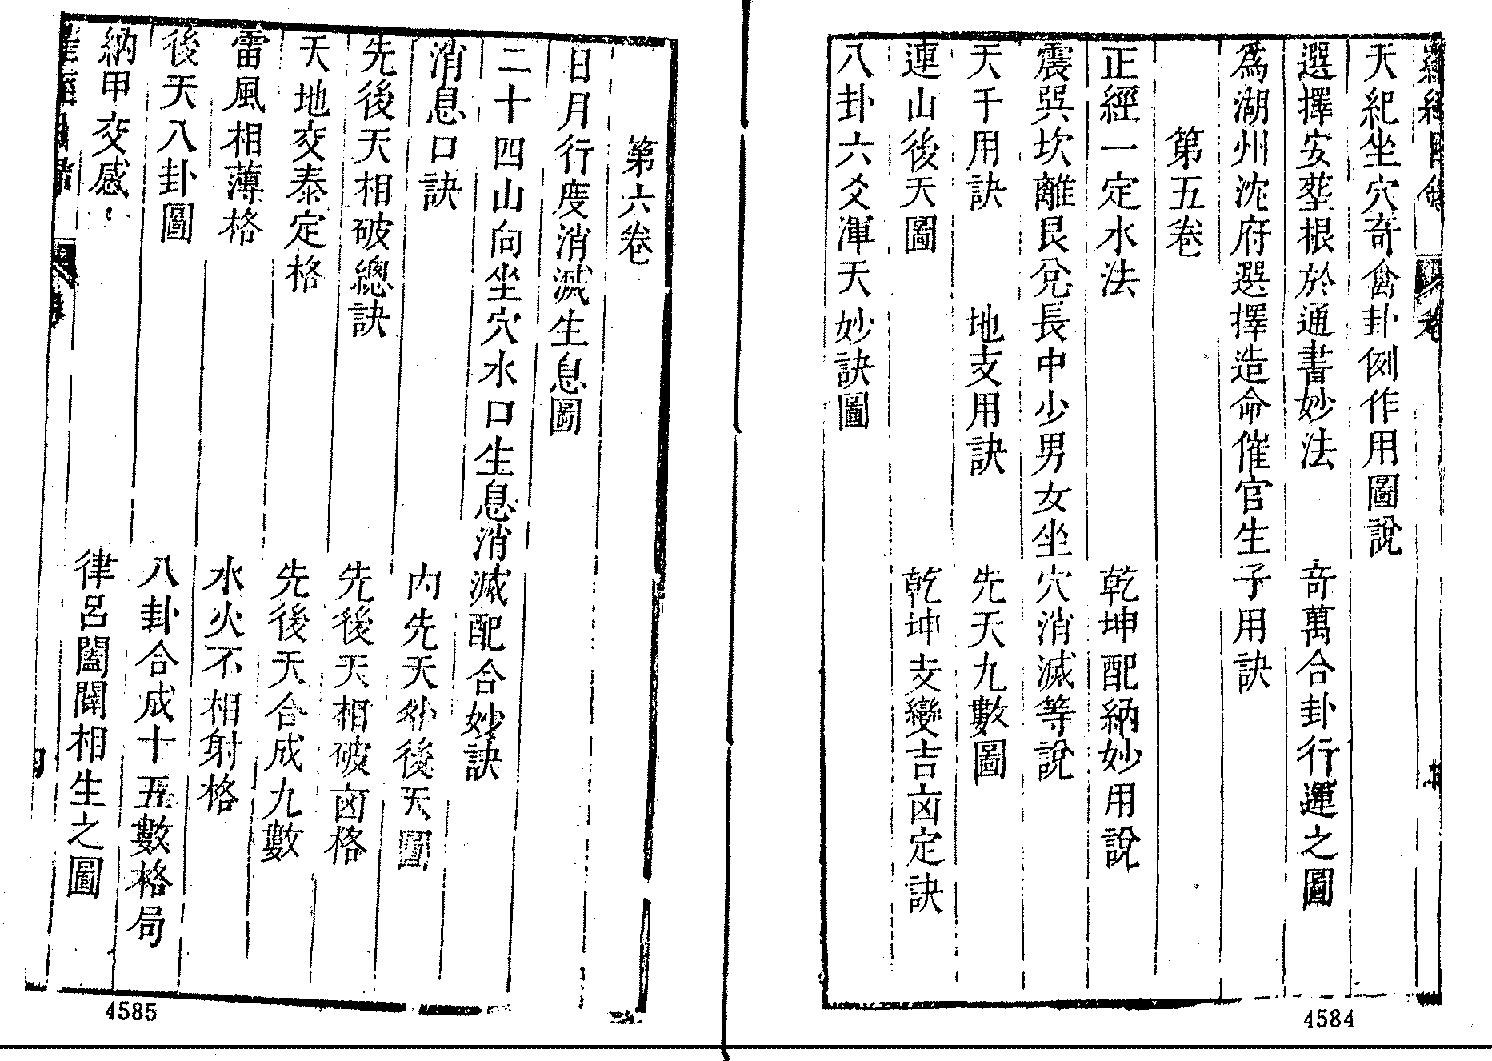 天紀坐穴奇禽卦例作用圖說
選擇安塟根於通書妙法　奇萬合卦行運之圖
為湖州沈府選擇造命催官生子用訣
第五卷
正經一定水法　乾坤配納妙用說
震巽坎離艮兌長中少男女坐穴消滅等說
天干用訣　地支用訣　先天九數圖
連山後天圖　乾坤支變吉凶定訣
八卦六爻渾天妙訣圖
4584
第六卷
日月行度消滅生息圖
二十四山向坐穴水口生息消滅配合妙訣
消息口訣　內先天外後天圖
先後天相破總訣　先後天相破凶格
天地交泰定格　先後天合成九數
雷風相薄格　水火不相射格
後天八卦圖　八卦合成十五數格局
納甲交感　律呂闔闢相生之圖
4585